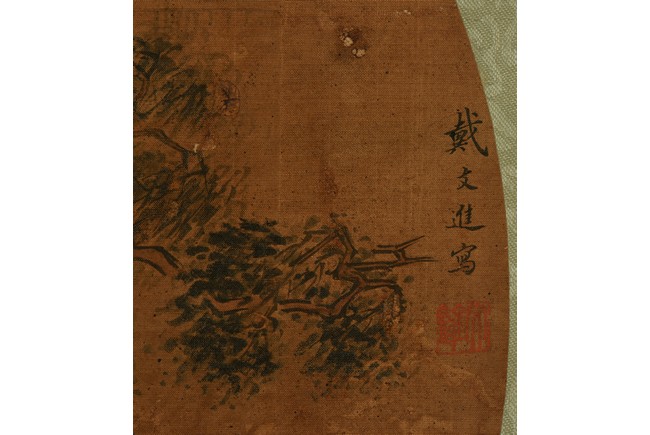 戴文進寫